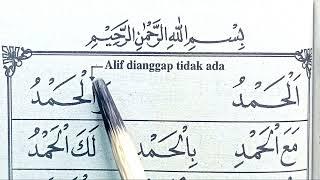 بِسْمِ اللهِ الرَّحْمٰنِ الرَّحِيْمِ
Alif dianggap tidak ada
اَلْحَمْدُ الْحَمْدُ
مَعَ الْحَمْدِ بِالْحَمْدِ لَكَ الْحَمْدُ